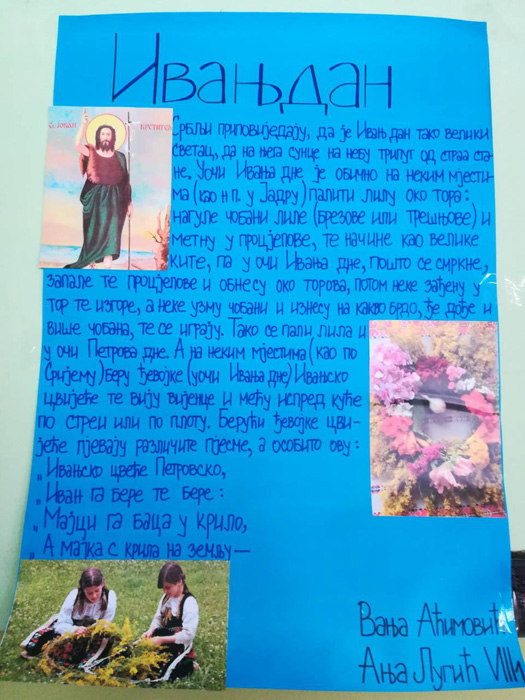 Ивањдан
С. ЈОВАН КРСТИТЕЉ
Србљи приповиједају, да је Ивањ дан тако велики
светац, да на њега сунце на небу трипут од страа ста-
не. Уочи Ивања дне је обично на неким мјести-
ма (као н п. у Јадру) палити лилу око тора:
нагуле чобани лиле (брезове или трешњове) и
метну у процјепове, те начине као велике
ките, па у очи Ивања дне, пошто се смркне,
запале те процјепове и обнесу око торова, потом неке зађену у
тор те изгоре, а неке узму чобани и изнесу на какво брдо, ђе дође и
више чобана, те се играју. Тако се пали лила и
у очи Петрова дне. А на неким мјестима (као по
Сријему) беру ђевојке (уочи Ивања дне) Ивањско
цвијеће те вију вијенце и међу испред куће
по стреи или по плоту. Берући ђевојке цви-
јеће пјевају различите пјесме, а особито ову:
„Ивањско цвеће Петровско,
„Иван га бере те бере:
„Мајци га баца у крило,
„А мајка с крила на земљу—
Вања Аћимовић
Ања Лугић VIII